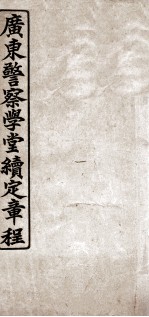 廣東警察學堂續定章程